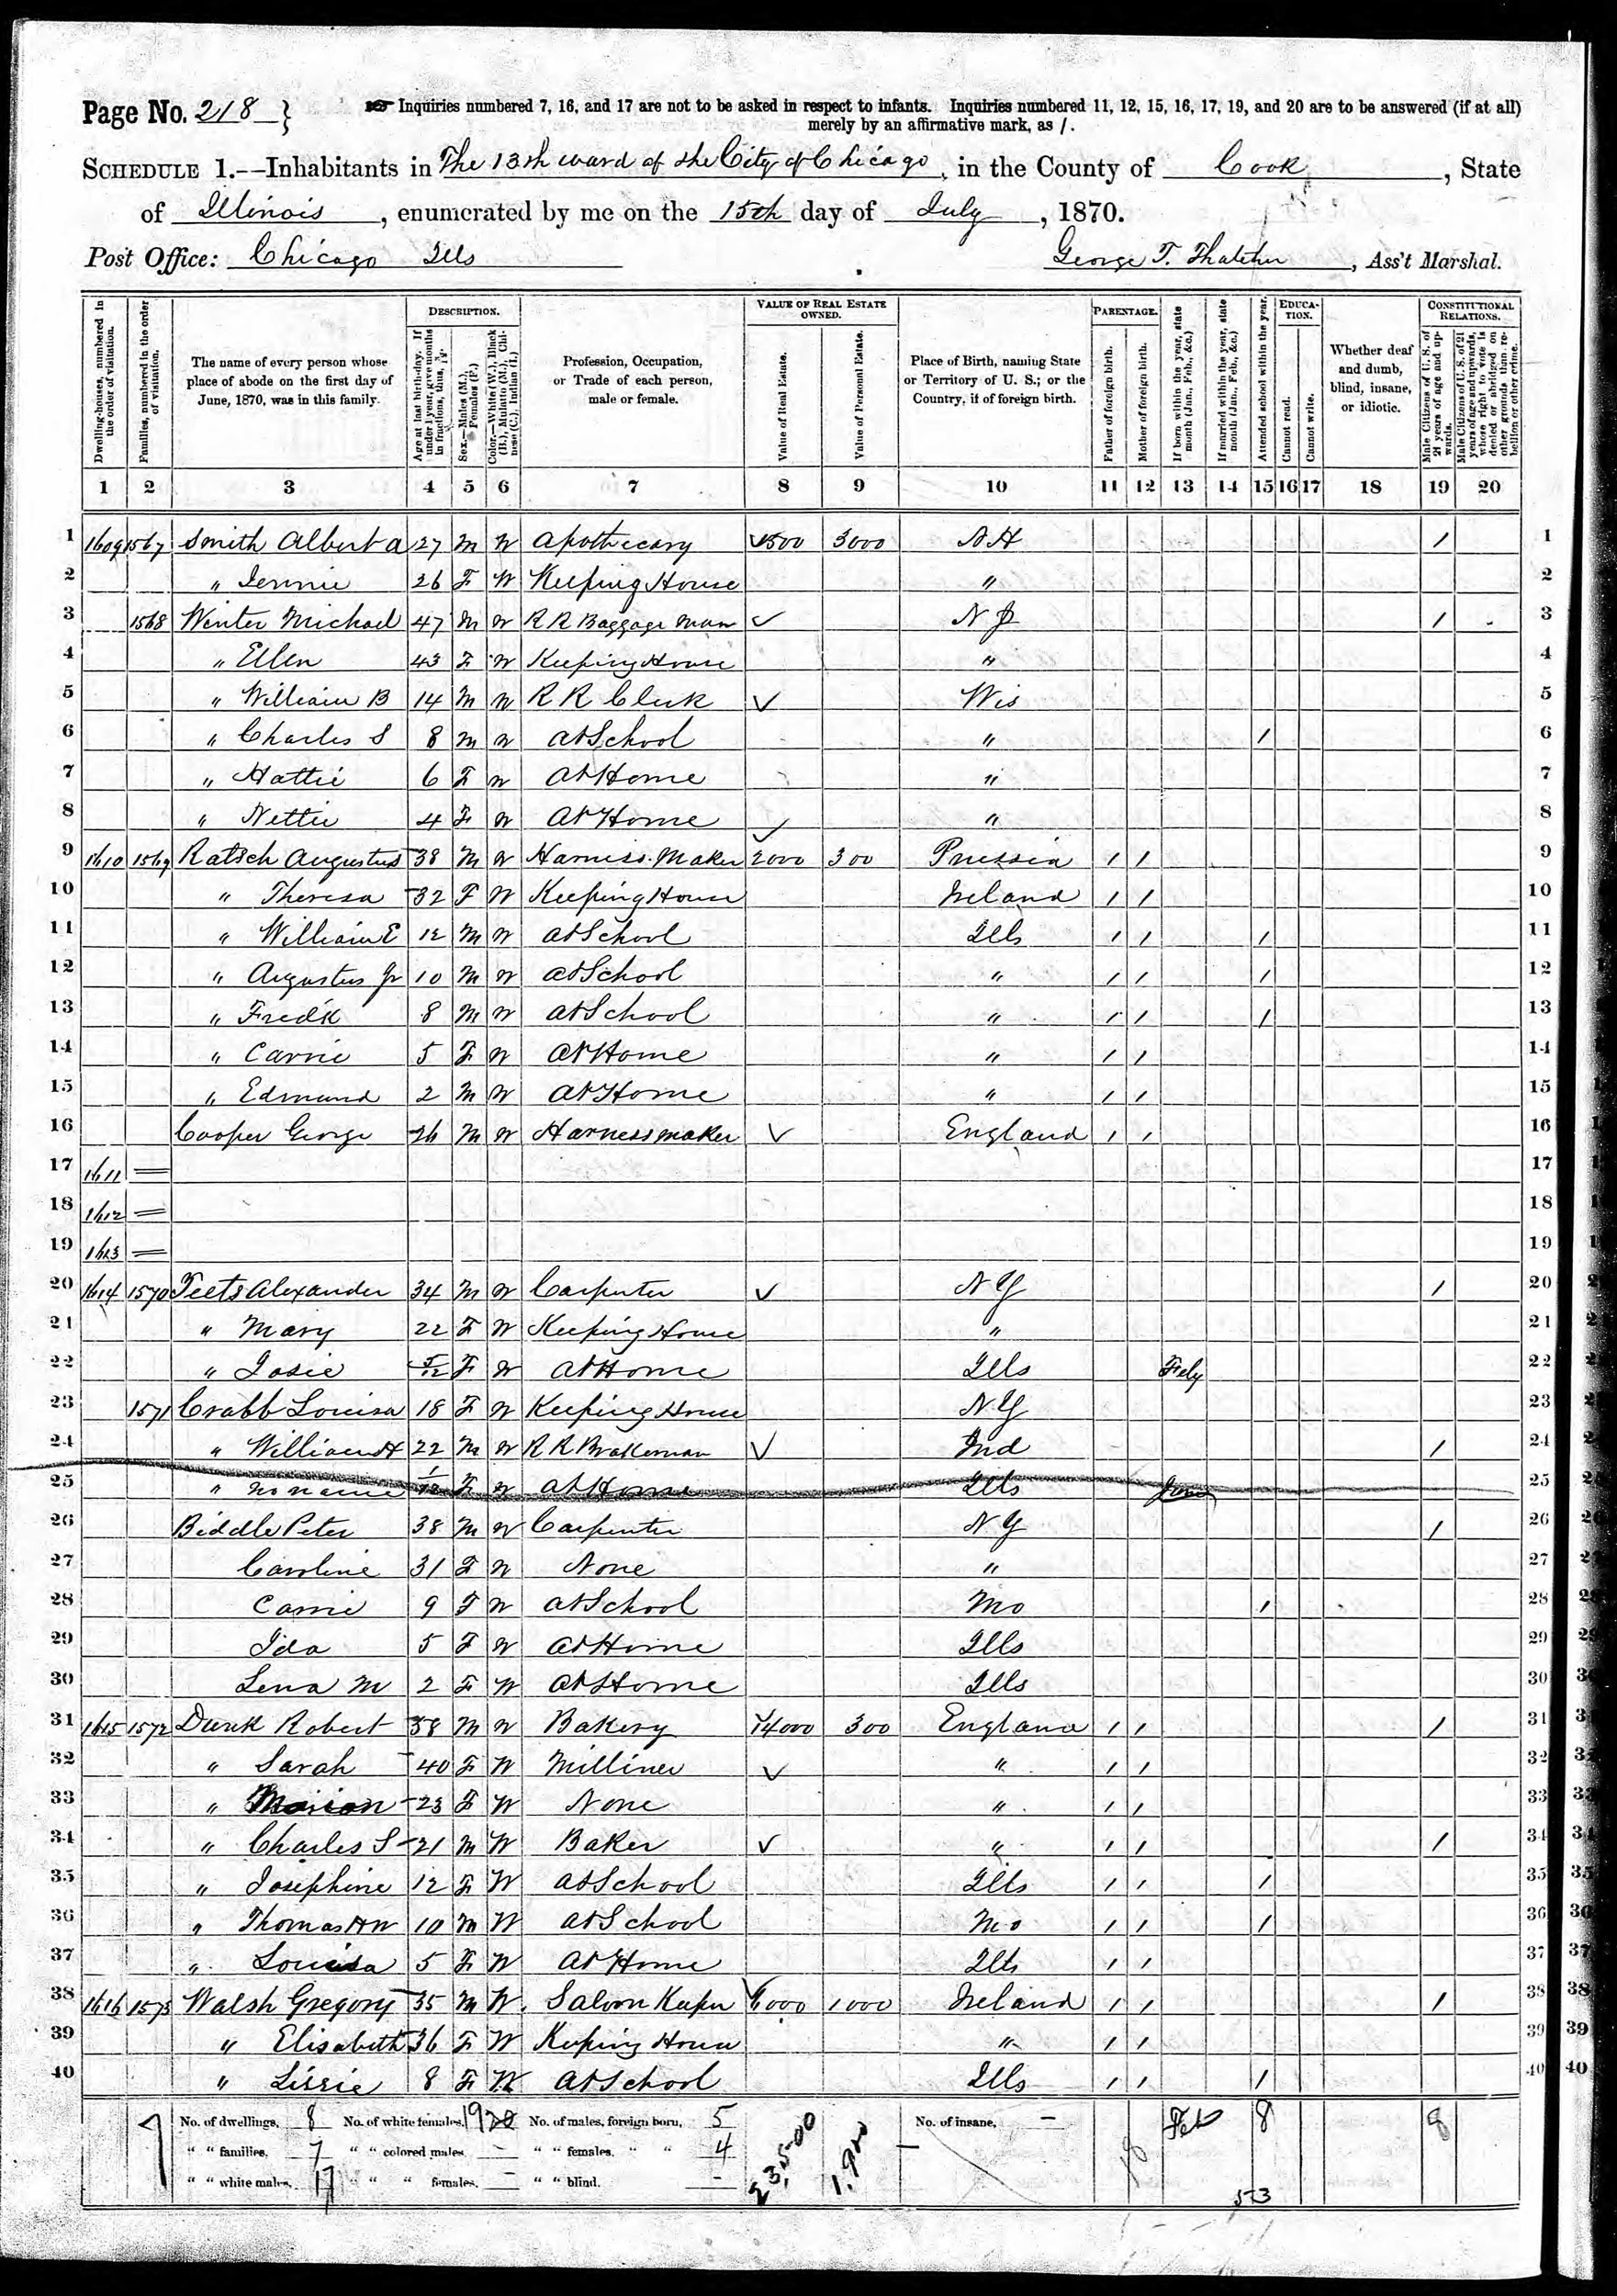 Page No. 218 } ☞ Inquiries numbered 7, 16, and 17 are not to be asked in respect to infants. Inquiries numbered 11, 12, 15, 16, 17, 19, and 20 are to be answered (if at all)
merely by an affirmative mark, as /.
SCHEDULE 1.--Inhabitants in The 13th ward of the City of Chicago, in the County of Cook, State
of Illinois, enumerated by me on the 15th day of July, 1870.
Post Office: Chicago Ills George T. Thatcher, Ass't Marshal.
Dwelling-houses, numbered in the order of visitation.
Families, numbered in the order of visitation.
The name of every person whose place of abode on the first day of June, 1870, was in this family.
DESCRIPTION.
Age at last birth-day. If under 1 year, give months in fractions, thus, 3/12.
Sex.—Males (M.), Females (F.)
Color.—White (W.), Black (B.), Mulatto (M.), Chinese (C.), Indian (I.)
Profession, Occupation, or Trade of each person, male or female.
VALUE OF REAL ESTATE OWNED.
Value of Real Estate.
Value of Personal Estate.
Place of Birth, naming State or Territory of U. S.; or the Country, if of foreign birth.
PARENTAGE.
Father of foreign birth.
Mother of foreign birth.
If born within the year, state month (Jan., Feb., &c.)
If married within the year, state month (Jan., Feb., &c.)
Attended school within the year.
EDUCATION.
Cannot read.
Cannot write.
Whether deaf and dumb, blind, insane, or idiotic.
CONSTITUTIONAL RELATIONS.
Male Citizens of U. S. of 21 years of age and upwards.
Male Citizens of U. S. of 21 years of age and upwards, whose right to vote is denied or abridged on other grounds than rebellion or other crime.
1 2 3 4 5 6 7 8 9 10 11 12 13 14 15 16 17 18 19 20
1 1609 1567 Smith Albert A 27 M W Apothecary 3000 N H / 1
2 " Jennie 26 F W Keeping House " 2
3 1568 Winter Michael 47 M W R R Baggage Man ✓ / 3
4 " Ellen 43 F W Keeping House " 4
5 " William B 14 M W R R Clerk ✓ Wis 5
6 " Charles S 8 M W At School " / 6
7 " Hattie 6 F W At Home " 7
8 " Nettie 4 F W At Home " 8
9 1610 1569 Ratsch Augustus 38 M W Harness Maker ✓ 2000 300 Prussia / / 9
10 " Theresa 32 F W Keeping House Ireland / / 10
11 " William E 12 M W At School Ills / / / 11
12 " Augustus Jr 10 M W At School " / / / 12
13 " Fredk 8 M W At School " / / / 13
14 " Carrie 5 F W At Home " / / 14
15 " Edmund 2 M W At Home " / / 15
16 Cooper George 26 M W Harness maker ✓ England / / 16
17 1611 = 17
18 1612 = 18
19 1613 = 19
20 1614 1570 Teets Alexander 34 M W Carpenter ✓ N Y / 20
21 " Mary 22 F W Keeping House " 21
22 " Josie 5/12 F W At Home Ills Feby 22
23 1571 Crabb Louisa 18 F W Keeping House N Y 23
24 " William H 22 M W R R Brakeman ✓ Ind / 24
25 " no name 1/12 F W At Home Ills June 25
26 Biddle Peter 38 M W Carpenter N Y / 26
27 Caroline 31 F W None " 27
28 Carrie 9 F W At School Mo / 28
29 Ida 5 F W At Home Ills 29
30 Lena M 2 F W At Home Ills 30
31 1615 1572 Robert 38 M W Bakery 14000 300 England / / / 31
32 " Sarah 40 F W Milliner ✓ " / / 32
33 " Marion 23 F W None " / / 33
34 " Charles S 21 M W Baker ✓ " / / / 34
35 " Josephine 12 F W At School Ills / / / 35
36 " Thomas H W 10 M W At School Mo / / / 36
37 " Louisa 5 F W At Home Ills / / 37
38 1616 1573 Walsh Gregory 35 M W Saloon Keeper ✓ 6000 1000 Ireland / / / 38
39 " Elisabeth 36 F W Keeping House " / / 39
40 " Lizzie 8 F W At School Ills / / / 40
No. of dwellings, 8 No. of white females, 19 No. of males, foreign born, 5 23,500 No. of insane, — Feb 8 8
" " families, 7 " " colored males, — " " females, " " 4
" " white males, 17 " " " females, — " " blind, — 53